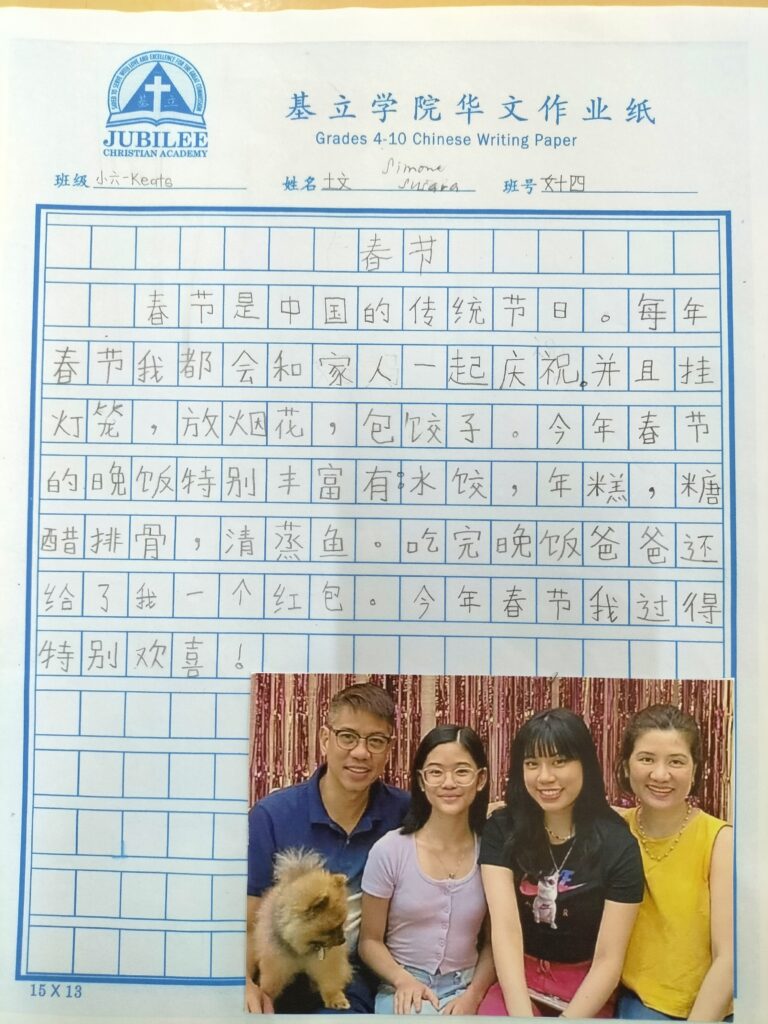 SAVED TO SERVE WITH LOVE AND EXCELLENCE FOR THE GREAT COMMISSION
基立
JUBILEE
CHRISTIAN ACADEMY
基立学院华文作业纸
Grades 4-10 Chinese Writing Paper
班级 小六-Keats 姓名 Simone 班号
春节
春节是中国的传统节日。每年
春节我都会和家人一起庆祝。并且挂
灯笼，放烟花，包饺子。今年春节
的晚饭特别丰富有：水饺，年糕，糖
醋排骨，清蒸鱼。吃完晚饭爸爸还
给了我一个红包。今年春节我过得
特别欢喜！
15 X 13